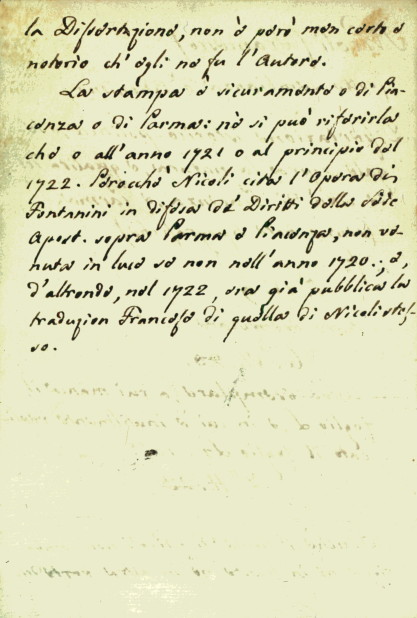 la Dissertazione, non è però men certo e
notorio ch' egli ne fu l'Autore.
La stampa è sicuramente o di Pia-
cenza o di Parma: nè si può riferirla
che o all'anno 1721 o al principio del
1722. Perocchè Nicoli cita l'Opera di
Fontanini in difesa de' Diritti della Sede
Apost. sopra Parma e Piacenza, non ve-
nuta in luce se non nell'anno 1720.; e,
d'altronde, nel 1722, era già pubblica la
traduzion Francese di quella di Nicoli stes-
so.